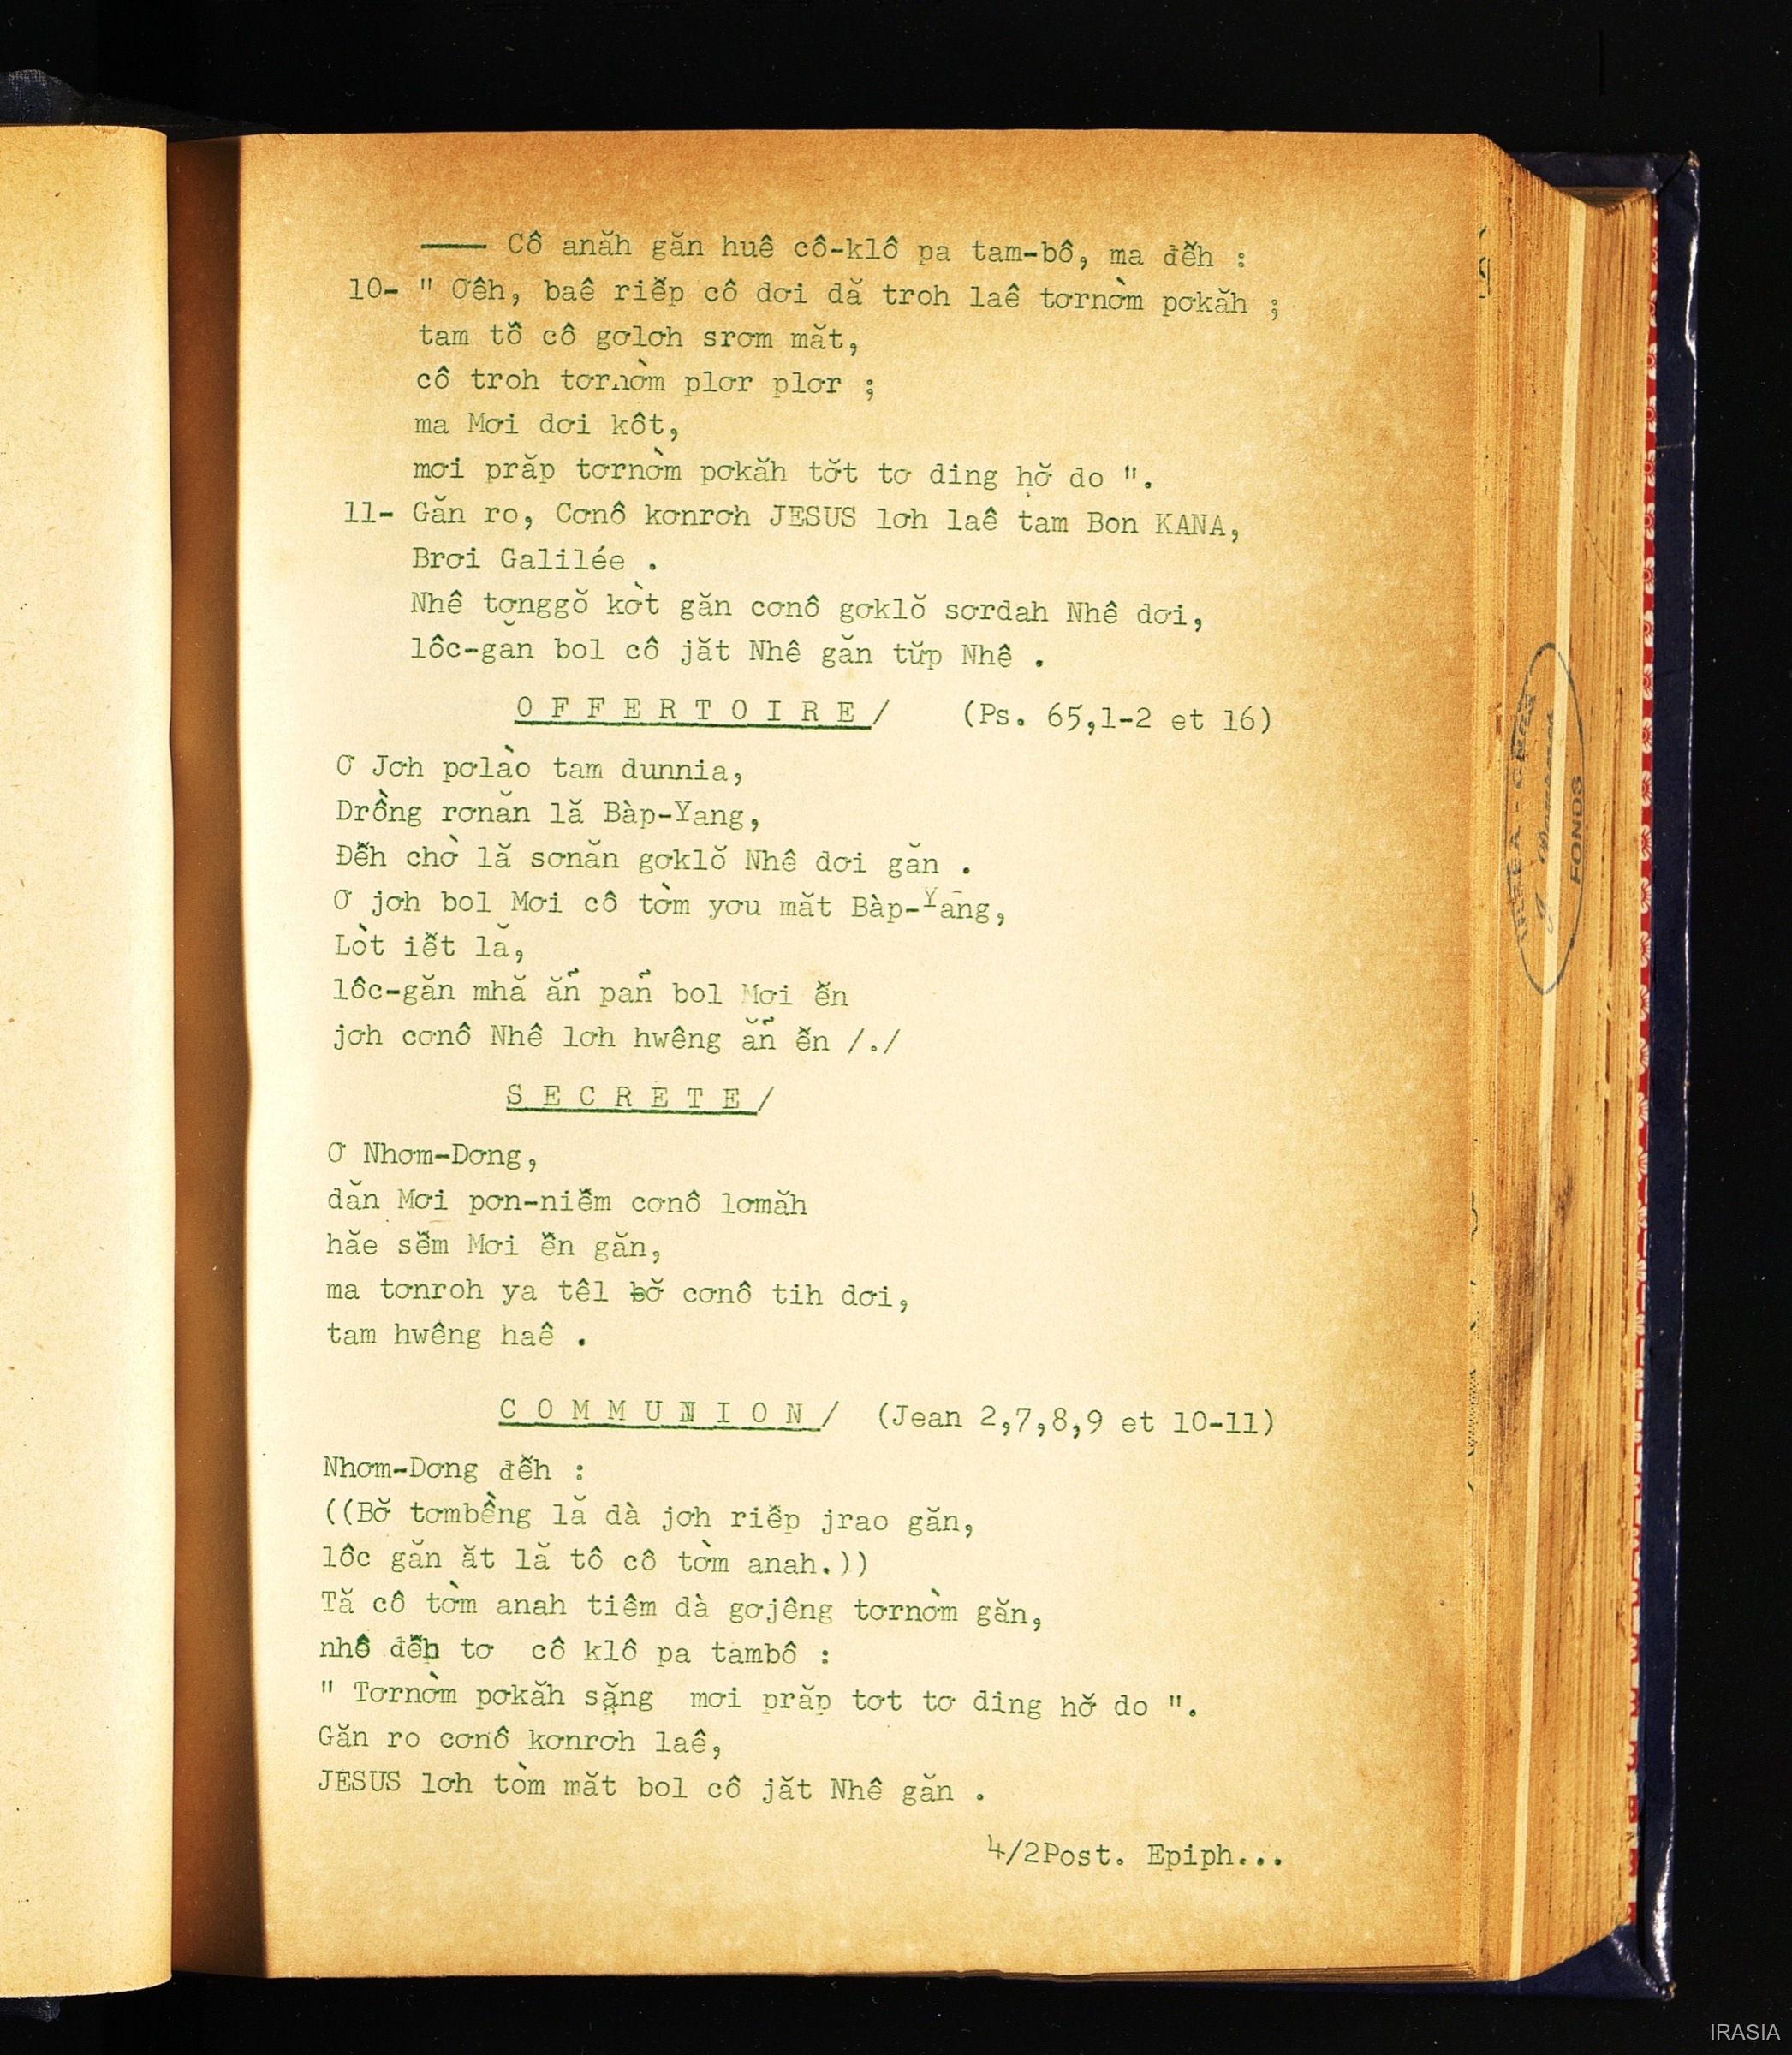 —— Cô anăh găn huê cô-klô pa tam-bô, ma đễh :
10- " Ơêh, baê riễp cô dơi dă troh laê tơrnờm pơkăh ;
tam tỗ cô gơlơh srơm măt,
cô troh tơrnờm plơr plơr ;
ma Mơi dơi kôt,
mơi prăp tơrnờm pơkăh tơ̆t tơ ding hơ̆ do ".
11- Găn ro, Cơnô kơnrơh JESUS lơh laê tam Bon KANA,
Brơi Galilée .
Nhê tơnggŏ kờt găn cơnô gơklŏ sơrdah Nhê dơi,
lôc-găn bol cô jăt Nhê găn tư̆p Nhê .
O F F E R T O I R E / (Ps. 65,1-2 et 16)
Ơ Jơh pơlào tam dunnia,
Drồng rơnăn lă Bàp-Yang,
Đễh chờ lă sơnăn gơklŏ Nhê dơi găn .
Ơ jơh bol Mơi cô tờm yơu măt Bàp-Yang,
Lòt iễt lă,
lôc-găn mhă ăn̉ pan̉ bol Mơi ễn
jơh cơnô Nhê lơh hwêng ăn̉ ễn /./
S E C R E T E /
Ơ Nhơm-Dơng,
dăn Mơi pơn-niễm cơnô lơmăh
hăe sễm Mơi ễn găn,
ma tơnroh ya têl bơ̆ cơnô tih dơi,
tam hwêng haê .
C O M M U N I O N / (Jean 2,7,8,9 et 10-11)
Nhơm-Dơng đễh :
((Bơ̆ tơmbềng lă dà jơh riễp jrao găn,
lôc găn ăt lă tô cô tờm anah.))
Tă cô tờm anah tiêm dà gơjêng tơrnờm găn,
nhô đễh tơ cô klô pa tambô :
" Tơrnờm pơkăh sặng mơi prăp tơt tơ ding hơ̆ do ".
Găn ro cơnô kơnrơh laê,
JESUS lơh tòm măt bol cô jăt Nhê găn .
4/2Post. Epiph...
FONDS
IRASIA